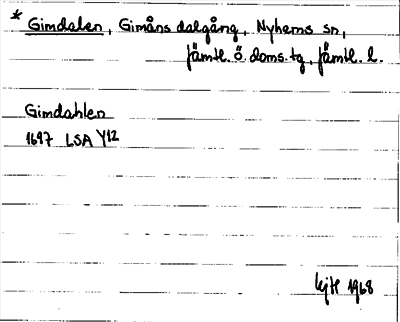 * Gimdalen, Gimåns dalgång, Nyhems sn,
Jämtl. ö. doms. tg, Jämtl. l.
Gimdahlen
1697 LSA Y12
1968